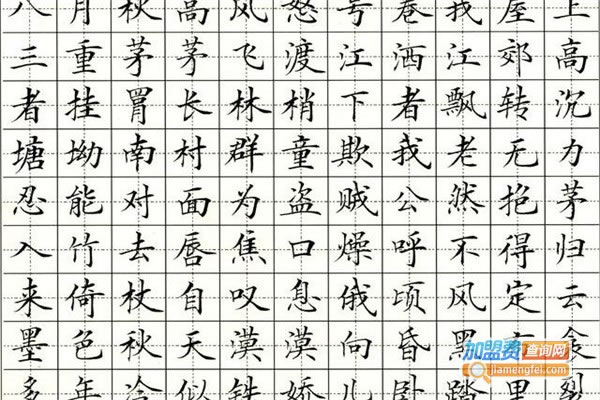 八月秋高风怒号卷我屋上
三重茅茅飞渡江洒江郊高
者挂罥长林梢下者飘转沉
塘坳南村群童欺我老无力
忍能对面为盗贼公然抱茅
入竹去唇焦口燥呼不得归
来倚杖自叹息俄顷风定云
墨色秋天漠漠向昏黑衾
多年冷似铁娇儿卧踏里裂
加盟费查询网
jiamengfei.com